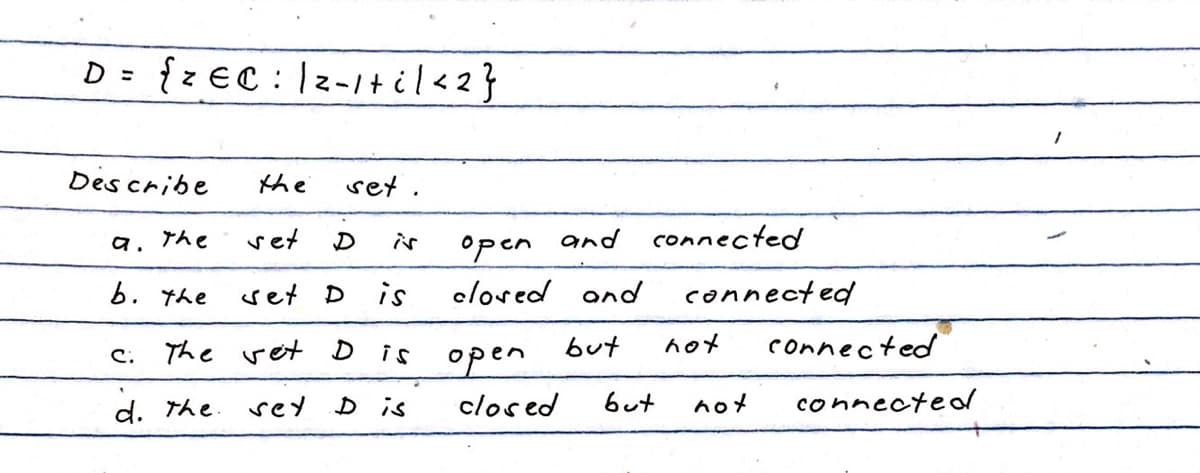 D = {z ∈ ℂ : |z-1+i|<2}
Describe the set.
a. The set D is open and connected
b. The set D is closed and connected
c. The set D is open but not connected
d. The set D is closed but not connected